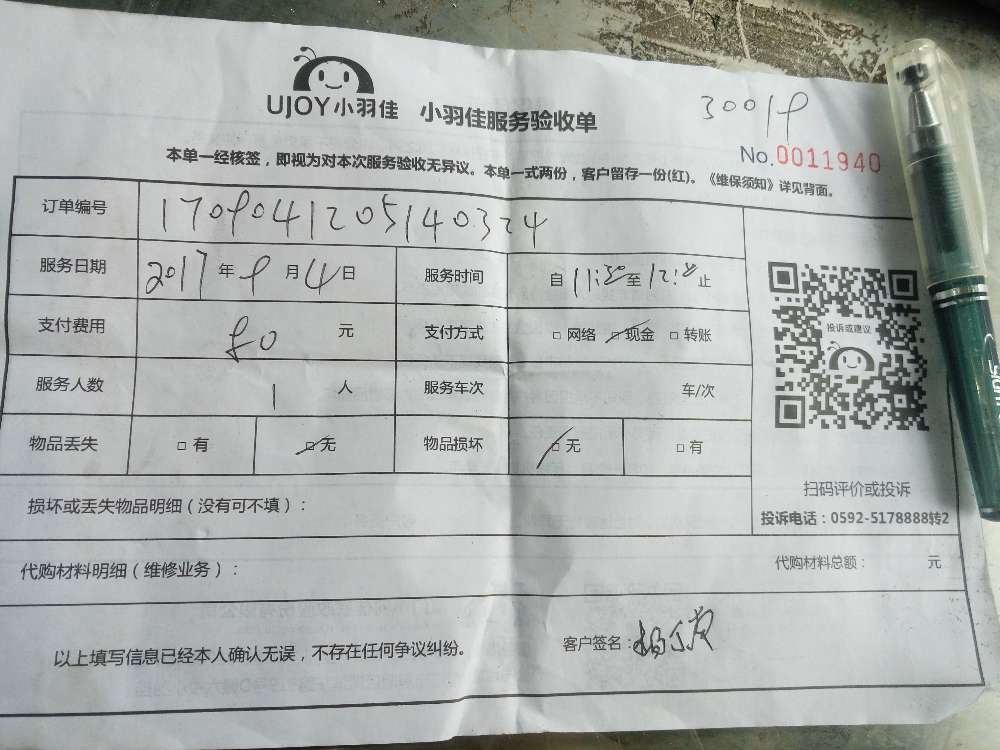 UJOY小羽佳 小羽佳服务验收单
30019
No.0011940
本单一经核签，即视为对本次服务验收无异议。本单一式两份，客户留存一份(红)。《维保须知》详见背面。
订单编号 1709041205140324
服务日期 2017年9月4日 服务时间 自11:30至12:10止
支付费用 80元 支付方式 □网络 □现金 □转账
服务人数 1人 服务车次 车/次
物品丢失 □有 □无 物品损坏 □无 □有
投诉或建议
扫码评价或投诉
投诉电话：0592-5178888转2
损坏或丢失物品明细（没有可不填）：
代购材料明细（维修业务）： 代购材料总额： 元
以上填写信息已经本人确认无误，不存在任何争议纠纷。 客户签名：